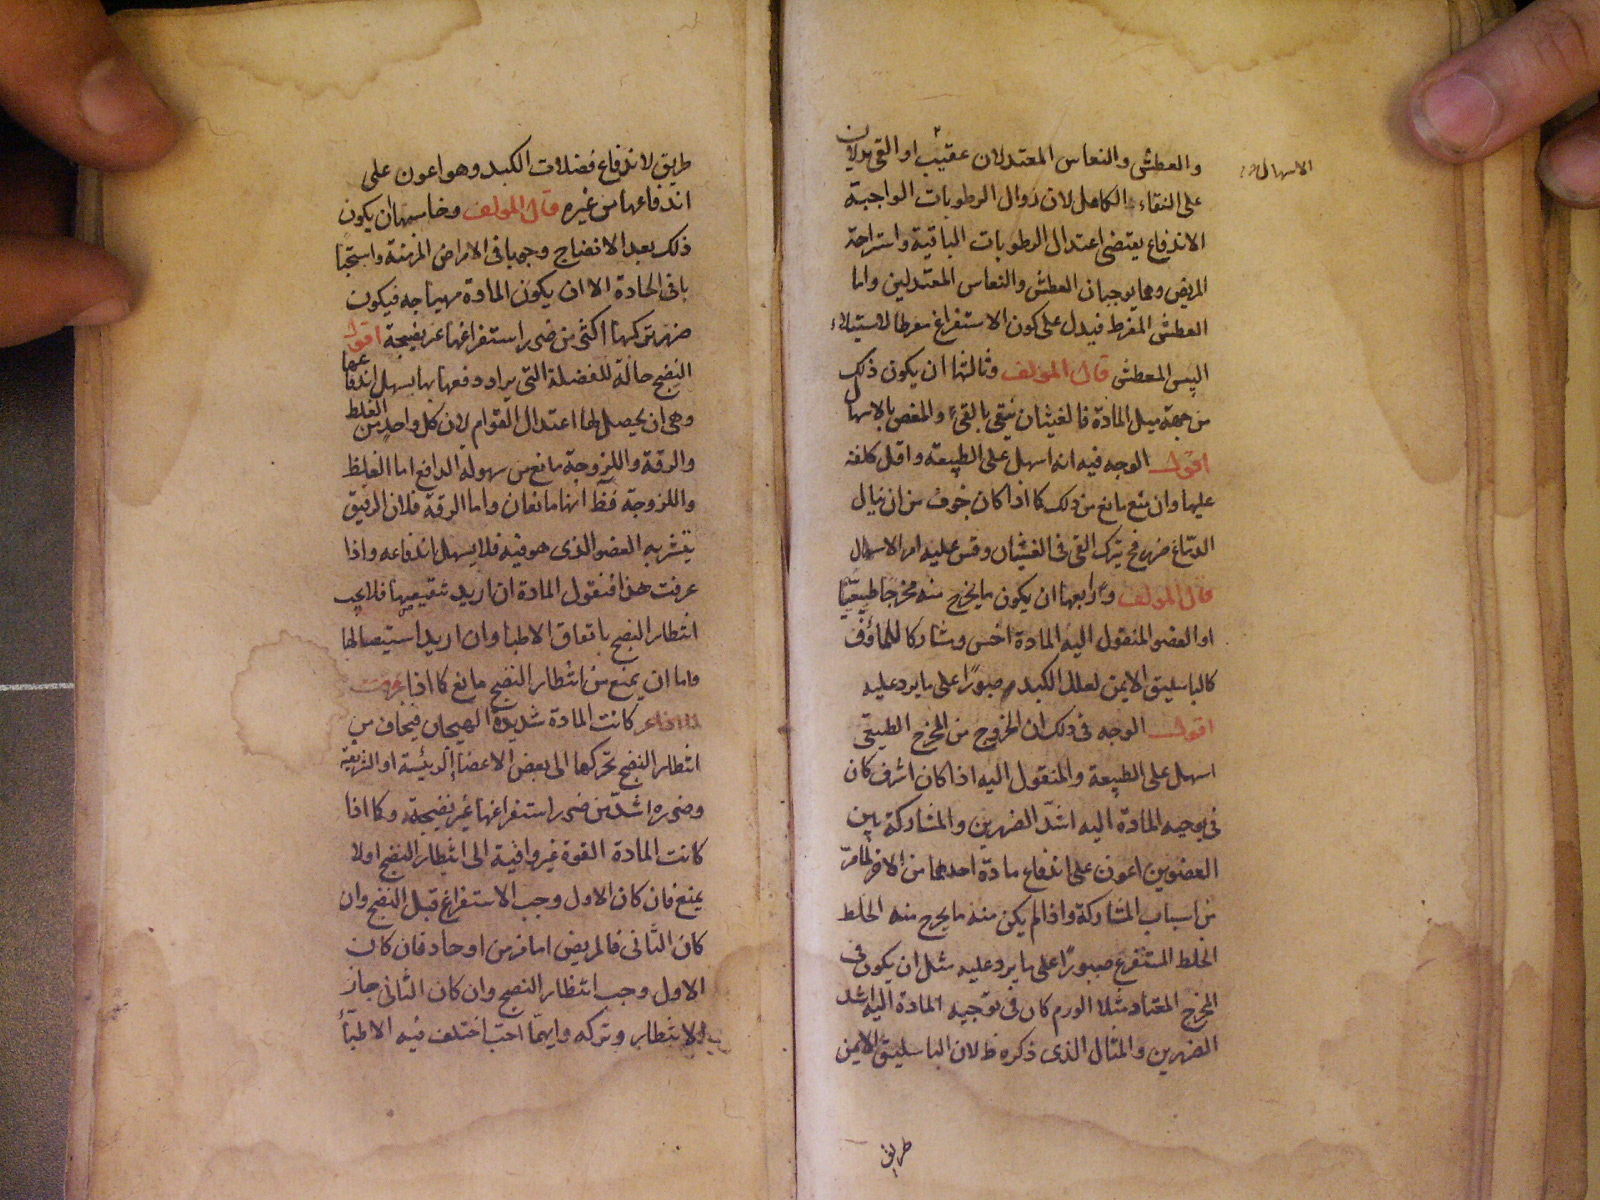 والعطش والنعاس المعتدلان عقيب او القى يدلان
الاسهال
على النقاء الكامل لان زوال الرطوبات الواجبة
الاندفاع يقتضى اعتدال الرطوبات الباقية واستراحة
المريض وهما يوجبان العطش والنعاس المعتدلين واما
العطش المفرط فيدل على كون الاستفراغ مفرطا لاستيلاء
اليبس المعطش قال المؤلف وثالثها ان يكون ذلك
من جهة ميل المادة فالغثيان ينقى بالقىء والمغص بالاسهال
اقول الوجه فيه انه اسهل على الطبيعة واقل كلفة
عليها وان منع مانع من ذلك كما اذا كان خوف من ان ينال
الدماغ ضرر فح يترك القى فى الغثيان وقس عليه امر الاسهال
قال المؤلف ورابعها ان يكون ما يخرج منه مخرجا طبيعيا
او العضو المنقول اليه المادة اخس ومشاركا للمأوف
كالباسليق الايمن لعلل الكبد صبورا على ما يرد عليه
اقول الوجه فى ذلك ان الخروج من المخرج الطبيعى
اسهل على الطبيعة والمنقول اليه اذا كان اشرف كان
فى توجيه المادة اليه اشد الضررين والمشاركة بين
العضوين اعون على اندفاع مادة احدهما من الاخر لما مر
من اسباب المشاركة واذا لم يكن منه ما يخرج منه الخلط
الخلط المستفرغ صبورا على ما يرد عليه مثل ان يكون فى
المخرج المعتاد مثلا الورم كان فى توجيه المادة اليه اشد
الضررين والمثال الذى ذكره ظ لان الباسليق الايمن
طريق
طريق لاندفاع فضلات الكبد وهو اعون على
اندفاعها من غيره قال المؤلف وخامسها ان يكون
ذلك بعد الانضاج وجوبا فى الامراض المزمنة واستحبا
با فى الحادة الا ان يكون المادة مهياجه فيكون
ضرر تركها اكثر من ضرر استفراغها غير نضيجة اقول
النضج حالة للفضلة التى يراد دفعها بها يسهل اندفاعها
وهى ان يحصل لها اعتدال القوام لان كل واحد من الغلظ
والرقة واللزوجة مانع من سهولة الدافع اما الغلظ
واللزوجة فظ انهما مانعان واما الرقة فلان الرقيق
يتشربه العضو الذى هو فيه فلا يسهل اندفاعه واذا
عرفت هذا فنقول المادة ان اريد تنقيصها فلا يجب
انتظار النضج باتفاق الاطبا وان اريد استيصالها
فاما ان يمنع من انتظار النضج مانع كما اذا
كانت المادة شديدة الهيجان فيخاف من
انتظار النضج تحركها الى بعض الاعضا الرئيسة او الشريفة
وضرره اشد من ضرر استفراغها غير نضيجة وكما اذا
كانت المادة القوة غير وافية الى انتظار النضج اولا
يمنع فان كان الاول وجب الاستفراغ قبل النضج وان
كان الثانى فالمريض اما مزمن او حاد فان كان
الاول وجب انتظار النضج وان كان الثانى جاز
الانتظار وتركه وايهما احب اختلف فيه الاطباء